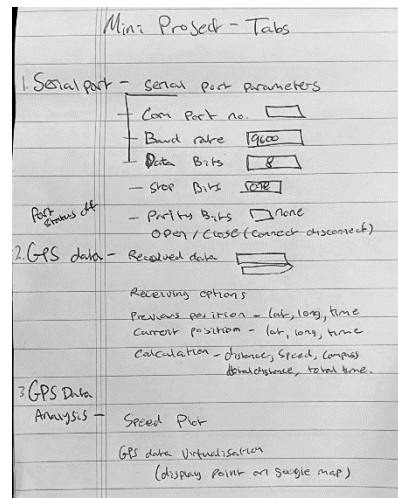 Mini Project - Tabs
1. Serial port - serial port parameters
Com Port no.
Baud rate 9600
Data Bits 8
Stop Bits one
Port status off
Parity Bits none
Open / Close (Connect disconnect)
2. GPS data - Received data
Receiving options
Previous position - lat, long, time
Current position - lat, long, time
Calculation - distance, speed, compass
total distance, total time.
3. GPS Data
Analysis - Speed Plot
GPS data virtualisation
(display point on google map)